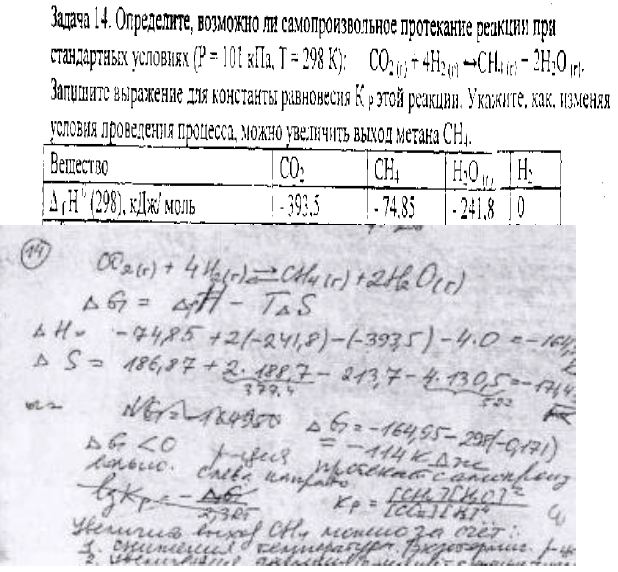 Задача 14. Определите, возможно ли самопроизвольное протекание реакции при
стандартных условиях (P = 101 кПа, T = 298 К): CO2 (г) + 4H2 (г) ↔ CH4 (г) + 2H2O (г).
Запишите выражение для константы равновесия Kр этой реакции. Укажите, как, изменяя
условия проведения процесса, можно увеличить выход метана CH4.
Вещество CO2 CH4 H2O (г) H2
ΔfH0 (298), кДж/ моль - 393,5 - 74,85 - 241,8 0
14
CO2(г) + 4H2(г) ⇄ CH4(г) + 2H2O(г)
ΔG = ΔH - TΔS
ΔH = -74,85 + 2(-241,8) - (-393,5) - 4·0 = -164,
ΔS = 186,87 + 2·188,7 - 213,7 - 4·130,5 =
377,4 522
ΔG = -164,95 - 298(-0,171)
= -114 кДж
ΔG < 0 р-ция протекает самопроиз
вольно. слева направо
lgKp = - ΔG Kp = [CH4][H2O]²
[CO2][H2]⁴
Увеличить выход CH4 можно за счёт:
1. снижения температуры
2. увеличения давления